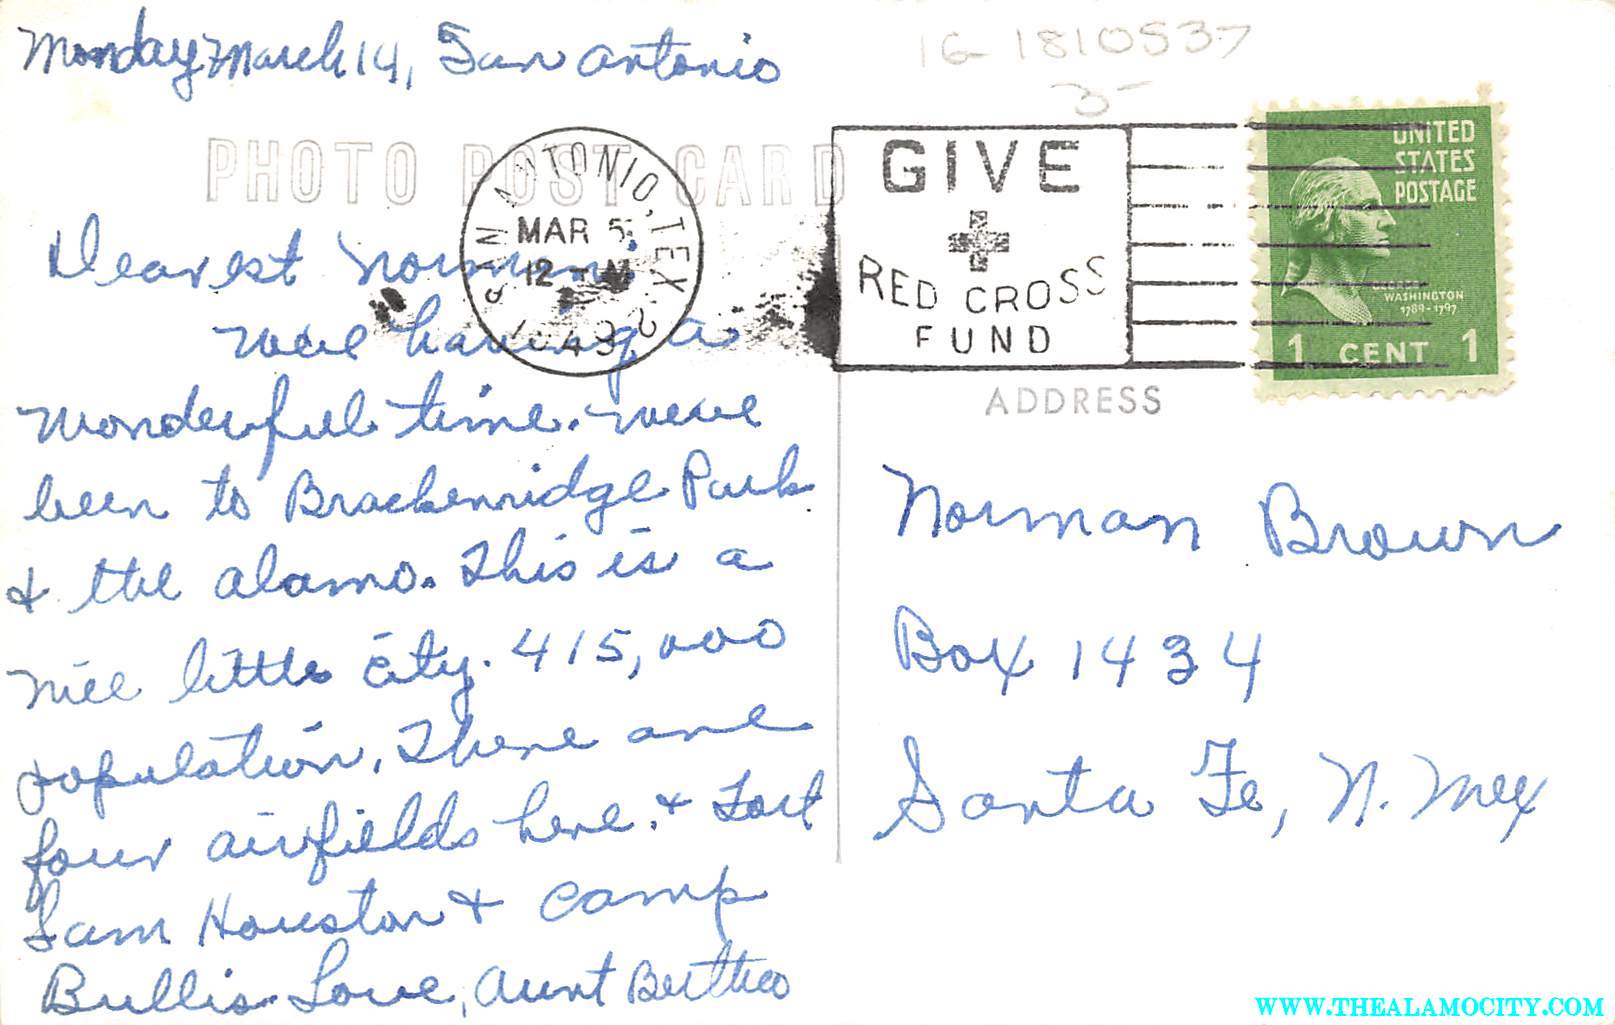 Monday March 14, San Antonio
16-1810537
3-
PHOTO POST CARD
SAN ANTONIO, TEX. 2
MAR 5
12 - M
1949
GIVE
RED CROSS
FUND
UNITED
STATES
POSTAGE
WASHINGTON
1789-1797
1 CENT 1
ADDRESS
Dearest
Were having a
Wonderful time. Weve
been to Brackenridge Park
& the Alamo. This is a
nice little city. 415,000
population. There are
four airfields here. & Fort
Sam Houston & Camp
Bullis. Love, Aunt Bertha
Norman Brown
Box 1434
Santa Fe, N. Mex
WWW.THEALAMOCITY.COM